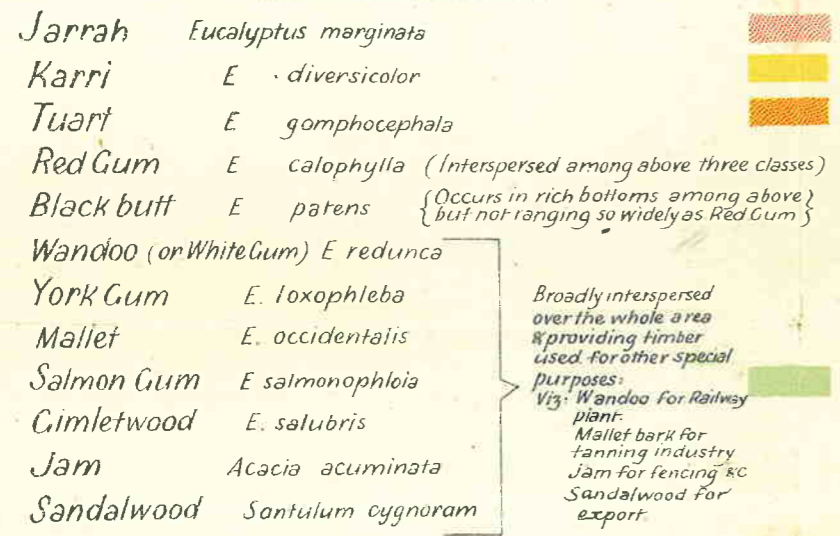 Jarrah Eucalyptus marginata
Karri E . diversicolor
Tuart E gomphocephala
Red Gum E calophylla (Interspersed among above three classes)
Black butt E patens {Occurs in rich bottoms among above}
{but not ranging so widely as Red Gum}
Wandoo (or White Gum) E redunca
York Gum E. loxophleba
Mallet E. occidentalis
Salmon Gum E salmonophloia
Gimletwood E. salubris
Jam Acacia acuminata
Sandalwood Santulum cygnoram
Broadly interspersed
over the whole area
& providing timber
used for other special
purposes:
Viz: Wandoo for Railway
plant.
Mallet bark for
tanning industry
Jam for fencing &c
Sandalwood for
export